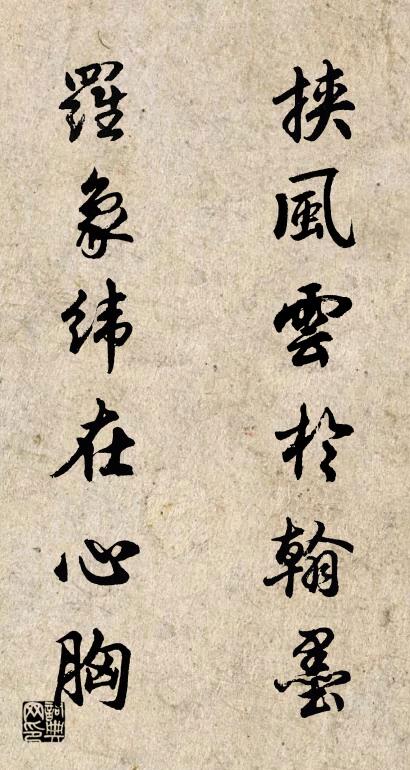 挾風雲於翰墨
羅象緯在心胸